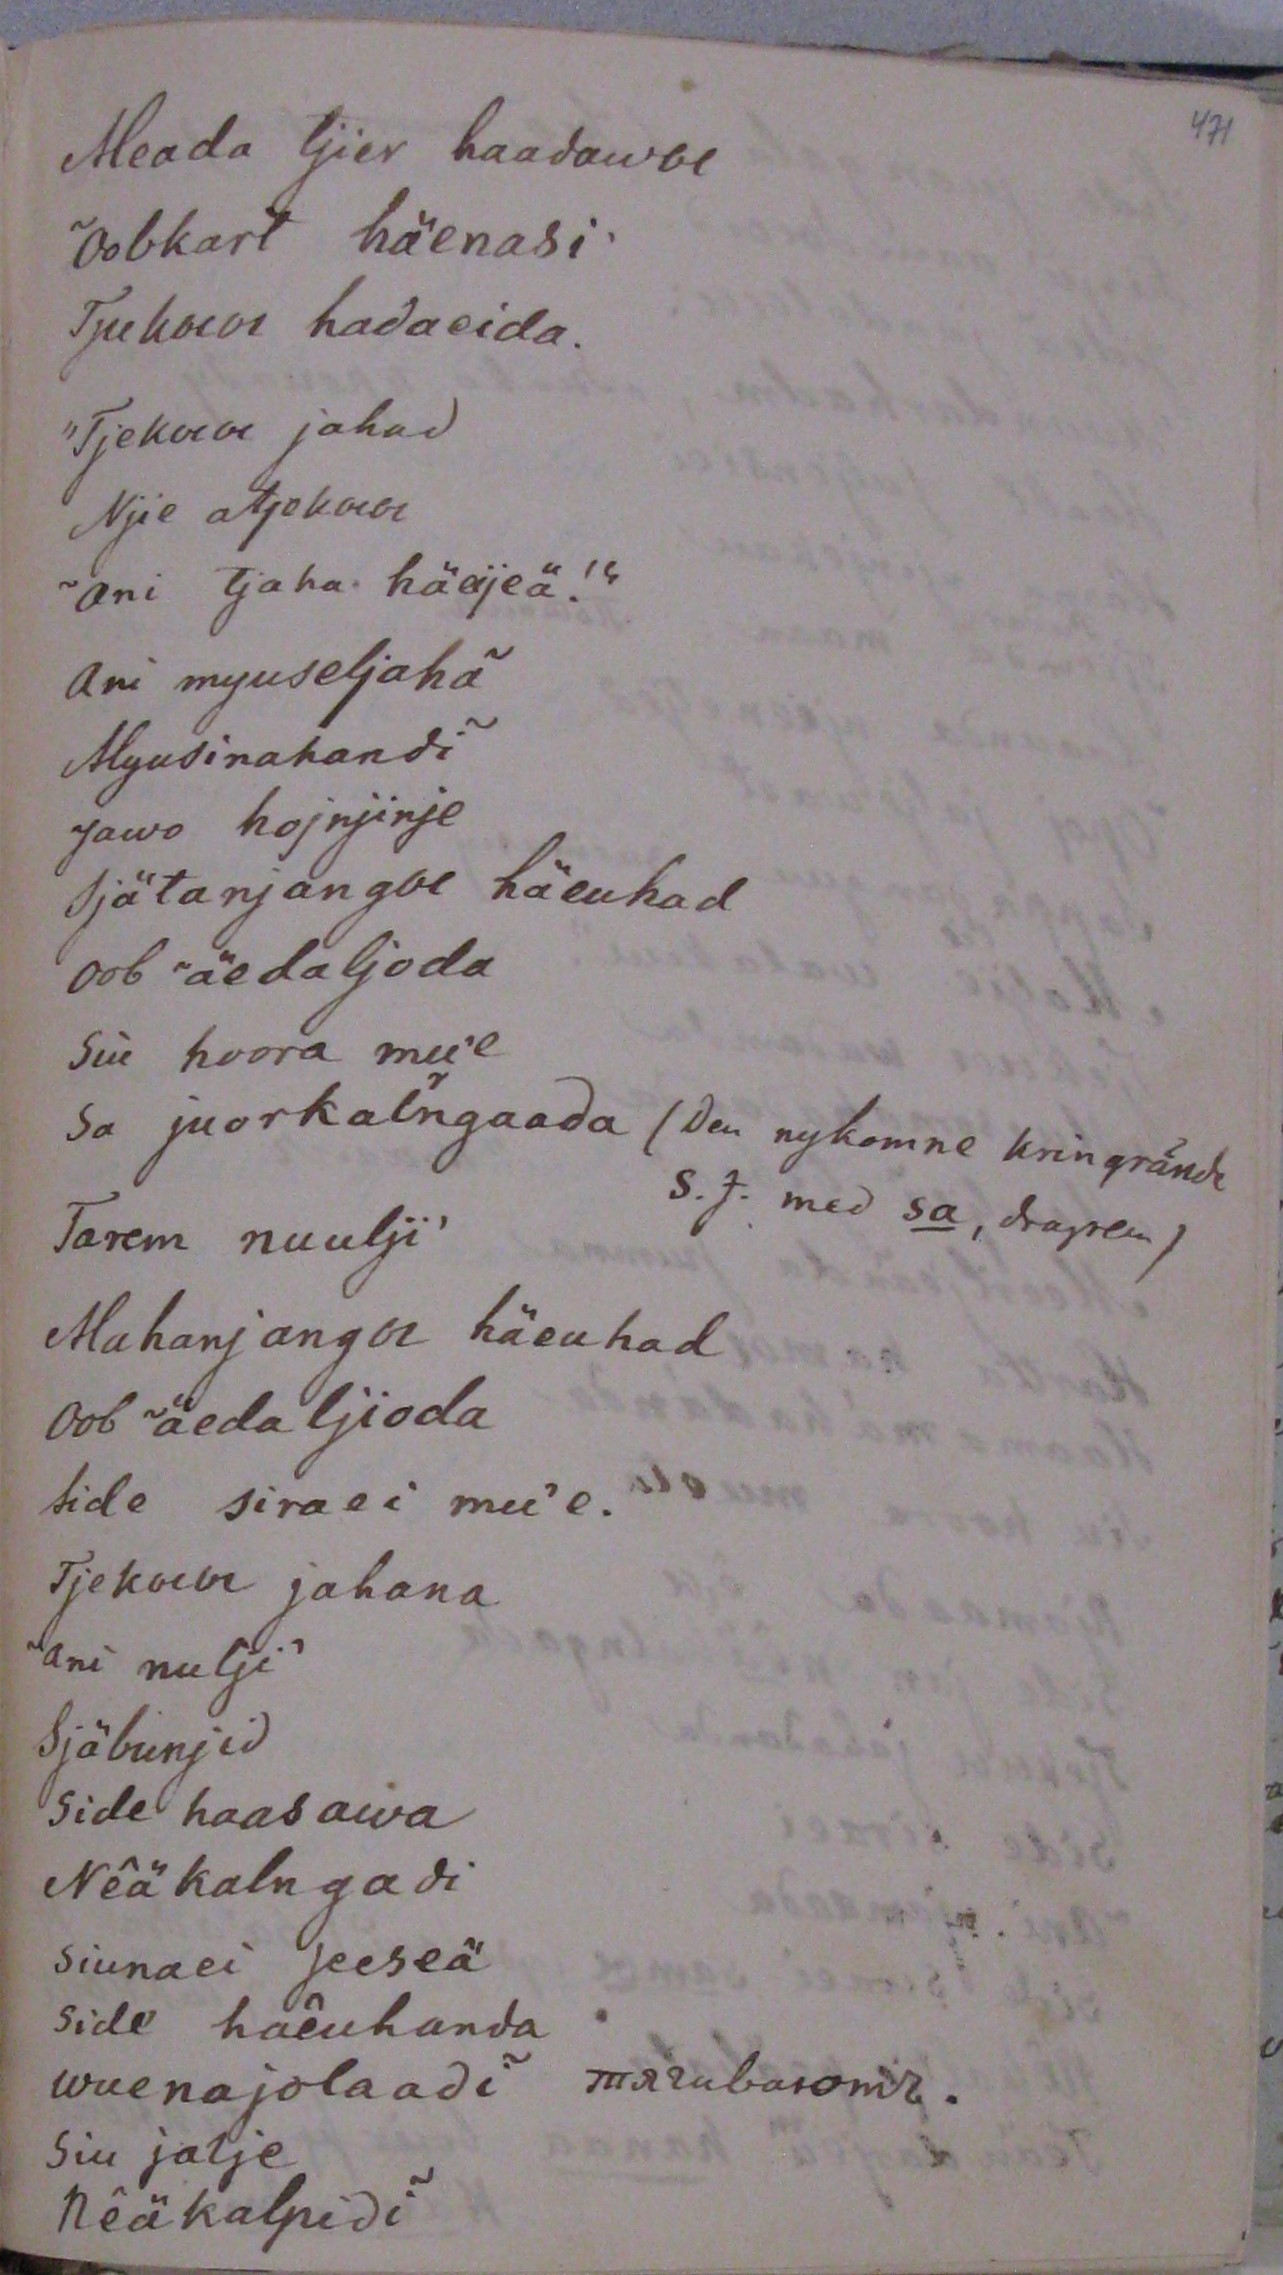 471
Meada tjier haadawoe
˜Oobkart häenasi'
Tjukoeoe hadaeida.
"Tjekoeoe jahad
Njie atjekoeoe
˜Ani tjaha häejeä!"
Ani myuseljahã
Myusinahandĩ
Jawo hojnjinje
Sjätanjangoe häeuhad
Oob ˜äedaljoda
Siu hoora mu'e
Sa juorkalñgaada (Den nykomne kringrände
S. J. med sa, dragren)
Tarem nuulji'
Mahanjangoe häeuhad
Oob ˜äedaljioda
Side siraei mu'e.
Tjekoeoe jahana
˜Ani nulji'
Sjäbunjid
Side haasawa
Nêäkalngadi
Siunaei jeeseä
Side haêuhanda
wuenajolaadĩ тягиваютъ.
Siu jalje
Nêäkalpidĩ